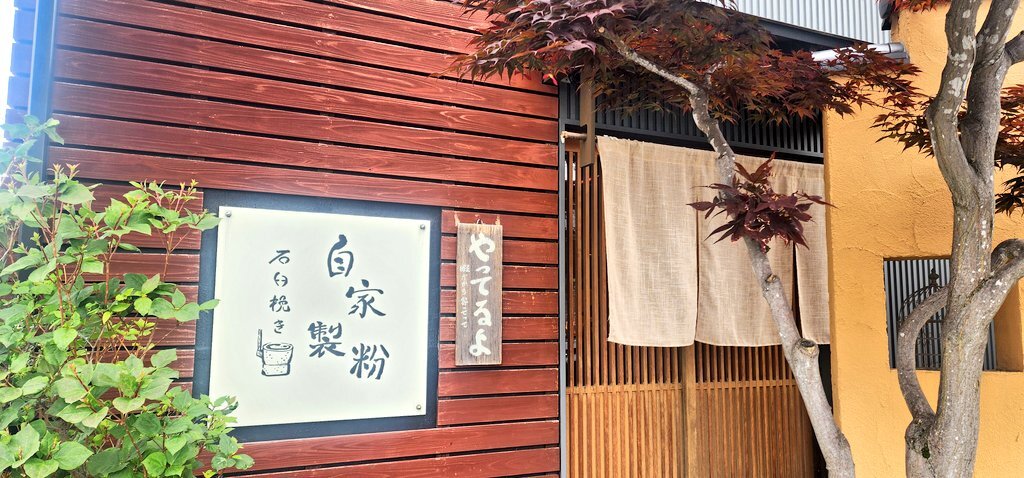 自家
製粉
石臼挽き
やってるよ